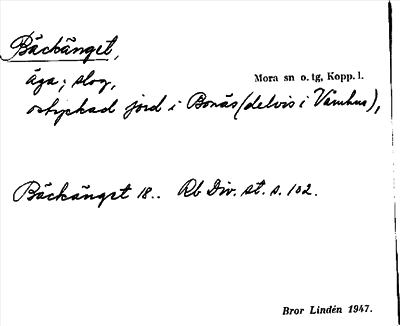 Bäckänget,
äga; slog,
Mora sn o. tg, Kopp. l.
ostyckad jord i Bonäs (delvis i Våmhus),
Bäckänget 18.. Rb Div. st. s. 102.
Bror Lindén 1947.